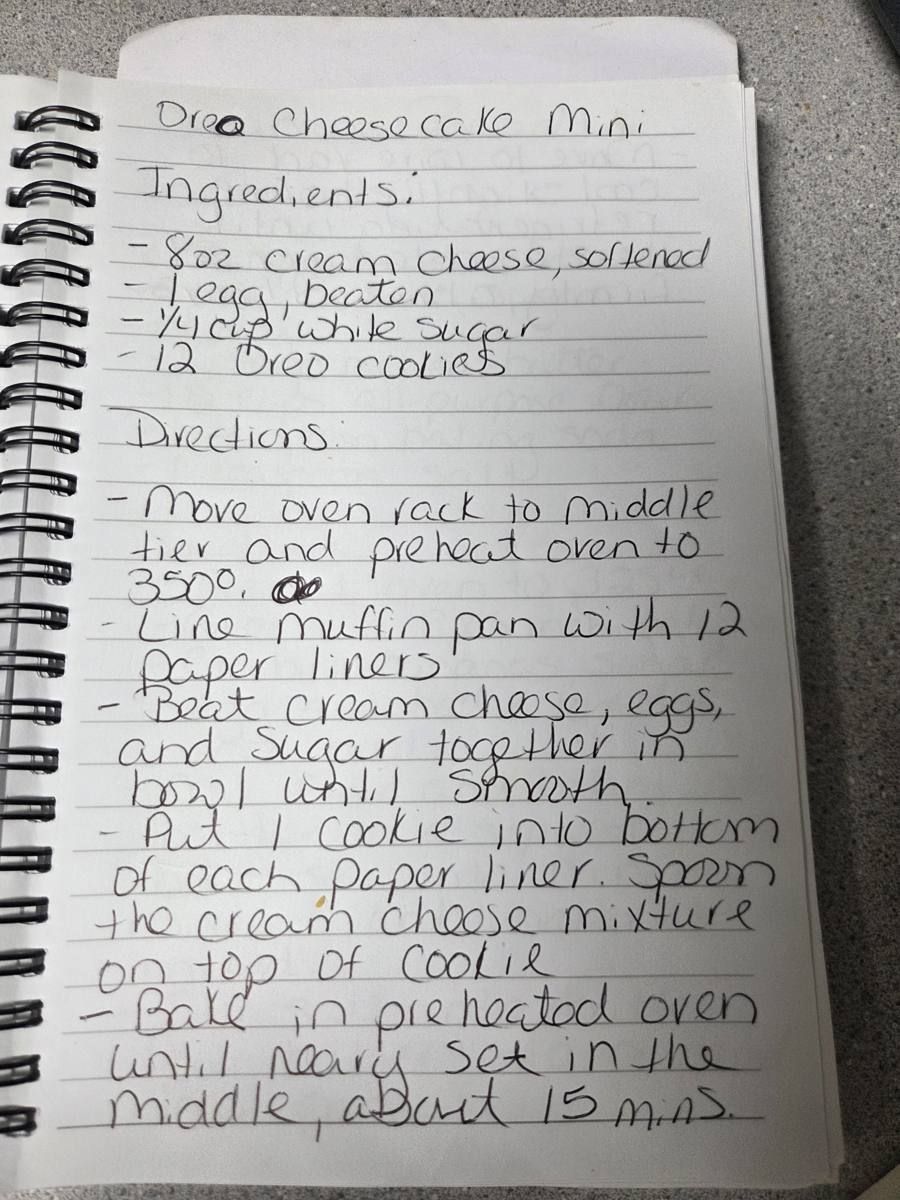 Oreo Cheesecake Mini
Ingredients:
- 8oz cream cheese, softened
- 1 egg, beaten
- 1/4 cup white sugar
- 12 Oreo cookies
Directions:
- Move oven rack to middle
tier and preheat oven to
350°.
- Line muffin pan with 12
paper liners
- Beat cream cheese, eggs,
and sugar together in
bowl until smooth.
- Put 1 cookie into bottom
of each paper liner. Spoon
the cream cheese mixture
on top of cookie
- Bake in preheated oven
until neary set in the
middle, about 15 mins.